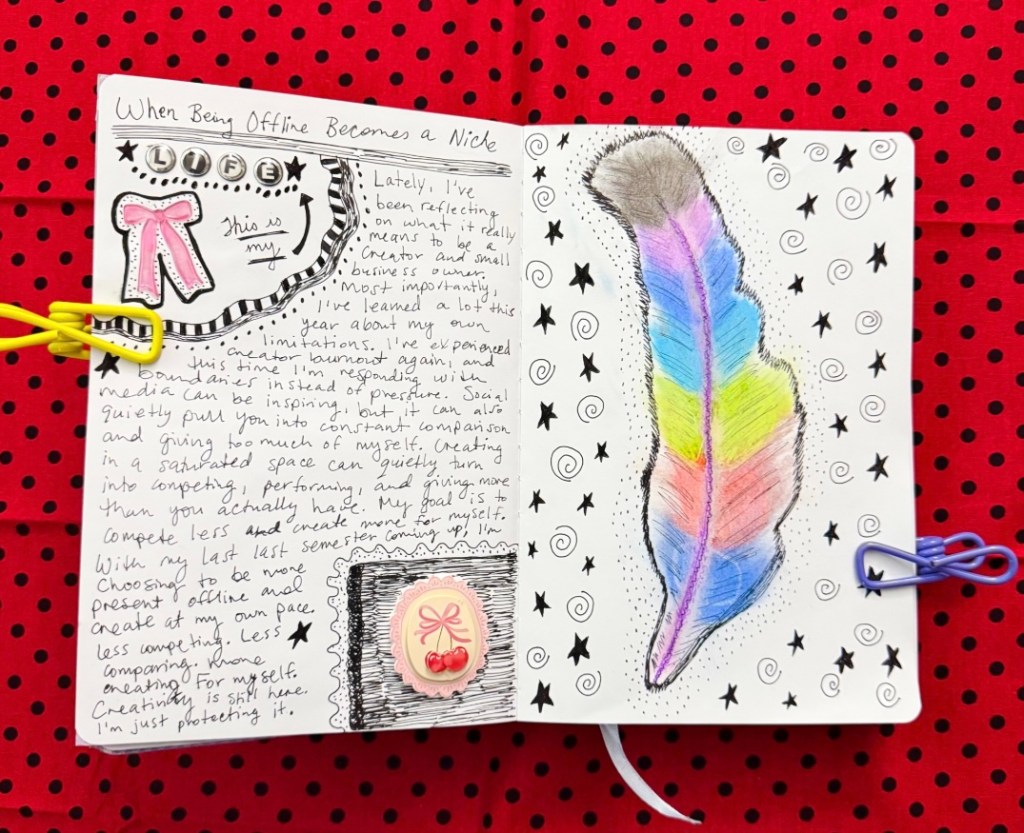 When Being Offline Becomes a Niche
LIFE
This is
my
Lately, I've
been reflecting
on what it really
means to be a
Creator and small
business owner.
most importantly,
I've learned a lot this
year about my own
limitations. I've experienced
creator burnout again, and
this time I'm responding with
boundaries instead of pressure. Social
media can be inspiring, but it can also
quietly pull you into constant comparison
and giving too much of myself. Creating
in a saturated space can quietly turn
into competing, performing, and giving more
than you actually have. My goal is to
compete less and create more for myself.
With my last last semester coming up, I'm
Choosing to be more
present offline and
create at my own pace.
less competing. Less
comparing. more
creating For myself.
Creativity is still here.
I'm just protecting it.